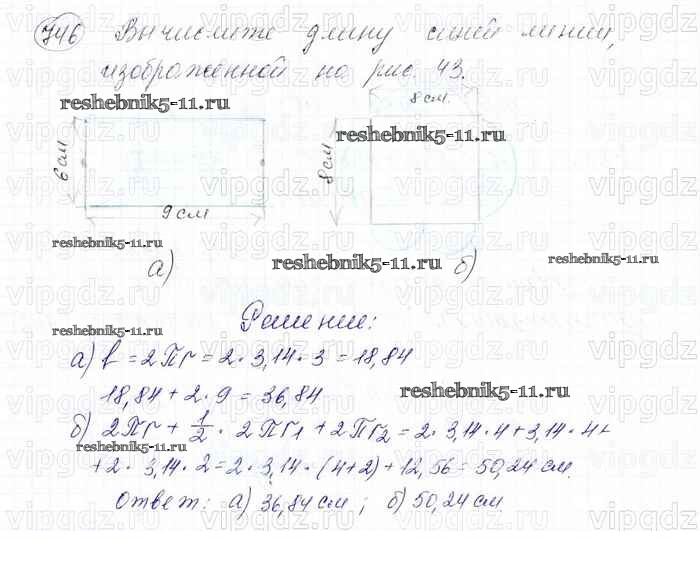 746 Вычислите длину синей линии,
изображённой на рис. 43.
reshebnik5-11.ru
8 см.
reshebnik5-11.ru
6 см
8 см
9 см
reshebnik5-11.ru
а)
reshebnik5-11.ru
б)
reshebnik5-11.ru
Решение:
reshebnik5-11.ru
а) l = 2πr = 2 · 3,14 · 3 = 18,84
18,84 + 2 · 9 = 36,84
reshebnik5-11.ru
б) 2πr + 1/2 · 2πr₁ + 2πr₂ = 2 · 3,14 · 4 + 3,14 · 4 +
reshebnik5-11.ru
+ 2 · 3,14 · 2 = 2 · 3,14 · (4+2) + 12,56 = 50,24 см.
Ответ: а) 36,84 см; б) 50,24 см
vipgdz.ru